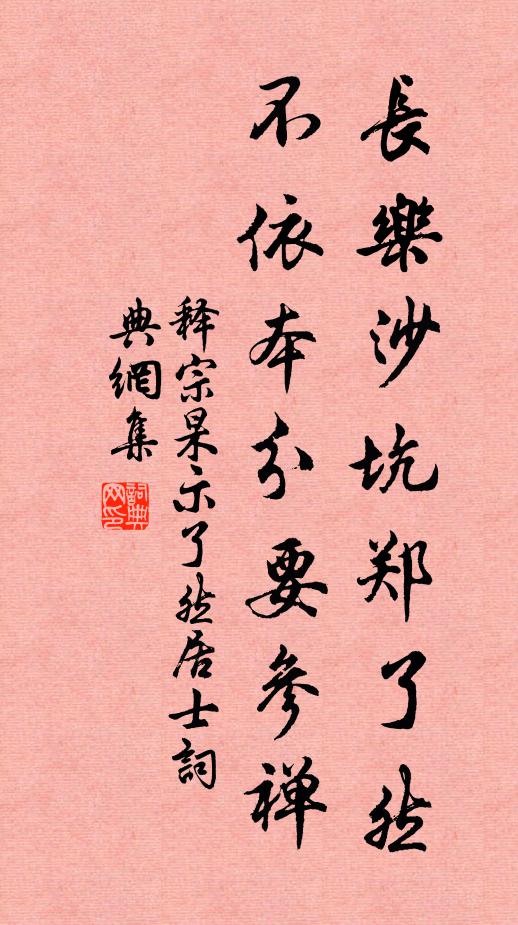 長樂沙坑郑了然
不依本分要參禅
释宗杲示了然居士詞
典網集
詞典
网印